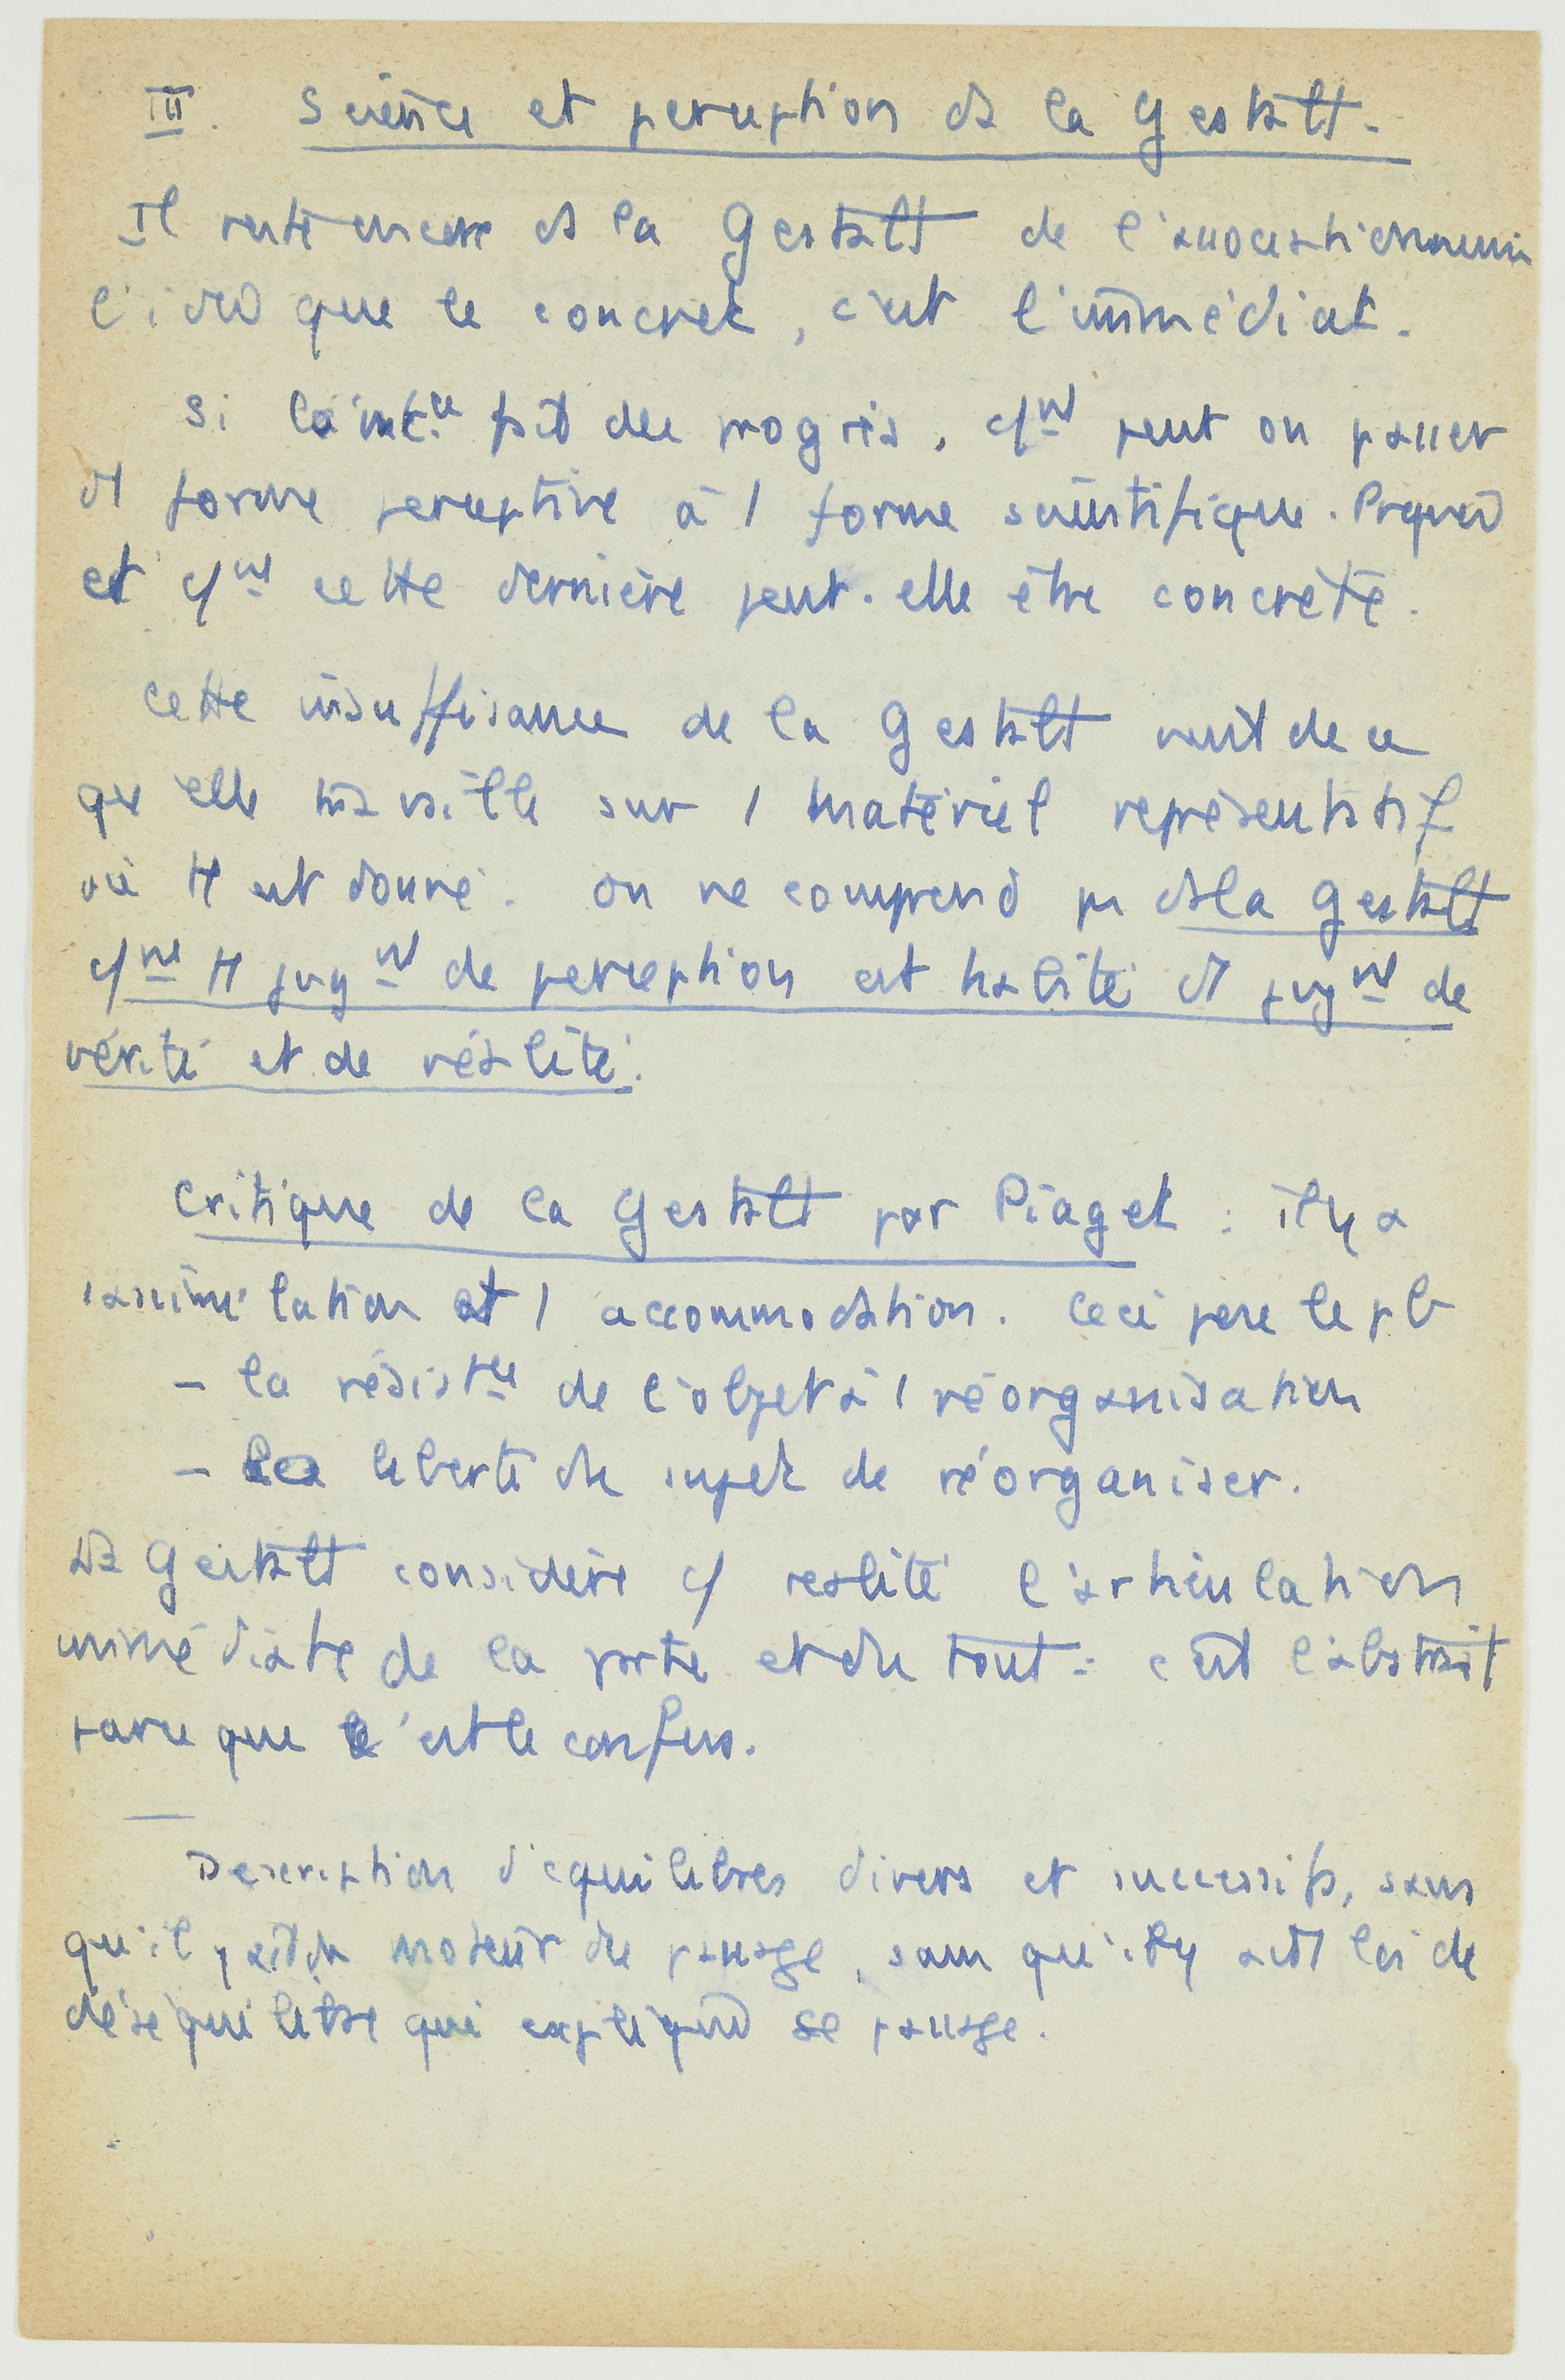 III. Science et perception ds la Gestalt.
Il reste encore ds la Gestalt de l'associationnisme
l'idée que le concret, c'est l'immédiat.
Si l'int.ce fait des progrès, c/nt peut on passer
d/ forme perceptive à / forme scientifique. Pquoi
et c/nt cette dernière peut-elle être concrète.
Cette insuffisance de la Gestalt vient de ce
qu'elle travaille sur / matériel représentatif
où tt est donné. on ne comprend pas ds la Gestalt
c/nt tt jugnt de perception est habité d/ jugnt de
vérité et de réalité.
Critique de la Gestalt par Piaget : il y a
/ assimilation et / accommodation. Ceci pose le pb
- la résistce de l'objet à / réorganisation
- la liberté du sujet de réorganiser.
La Gestalt considère c/ réalité l'articulation
immédiate de la partie et du tout : c'est l'abstrait
parce que c'est le confus.
Description d'équilibres divers et successifs, sans
qu'il y ait de moteur du passage, sans qu'il y ait d/ loi de
déséquilibre qui explique ce passage.